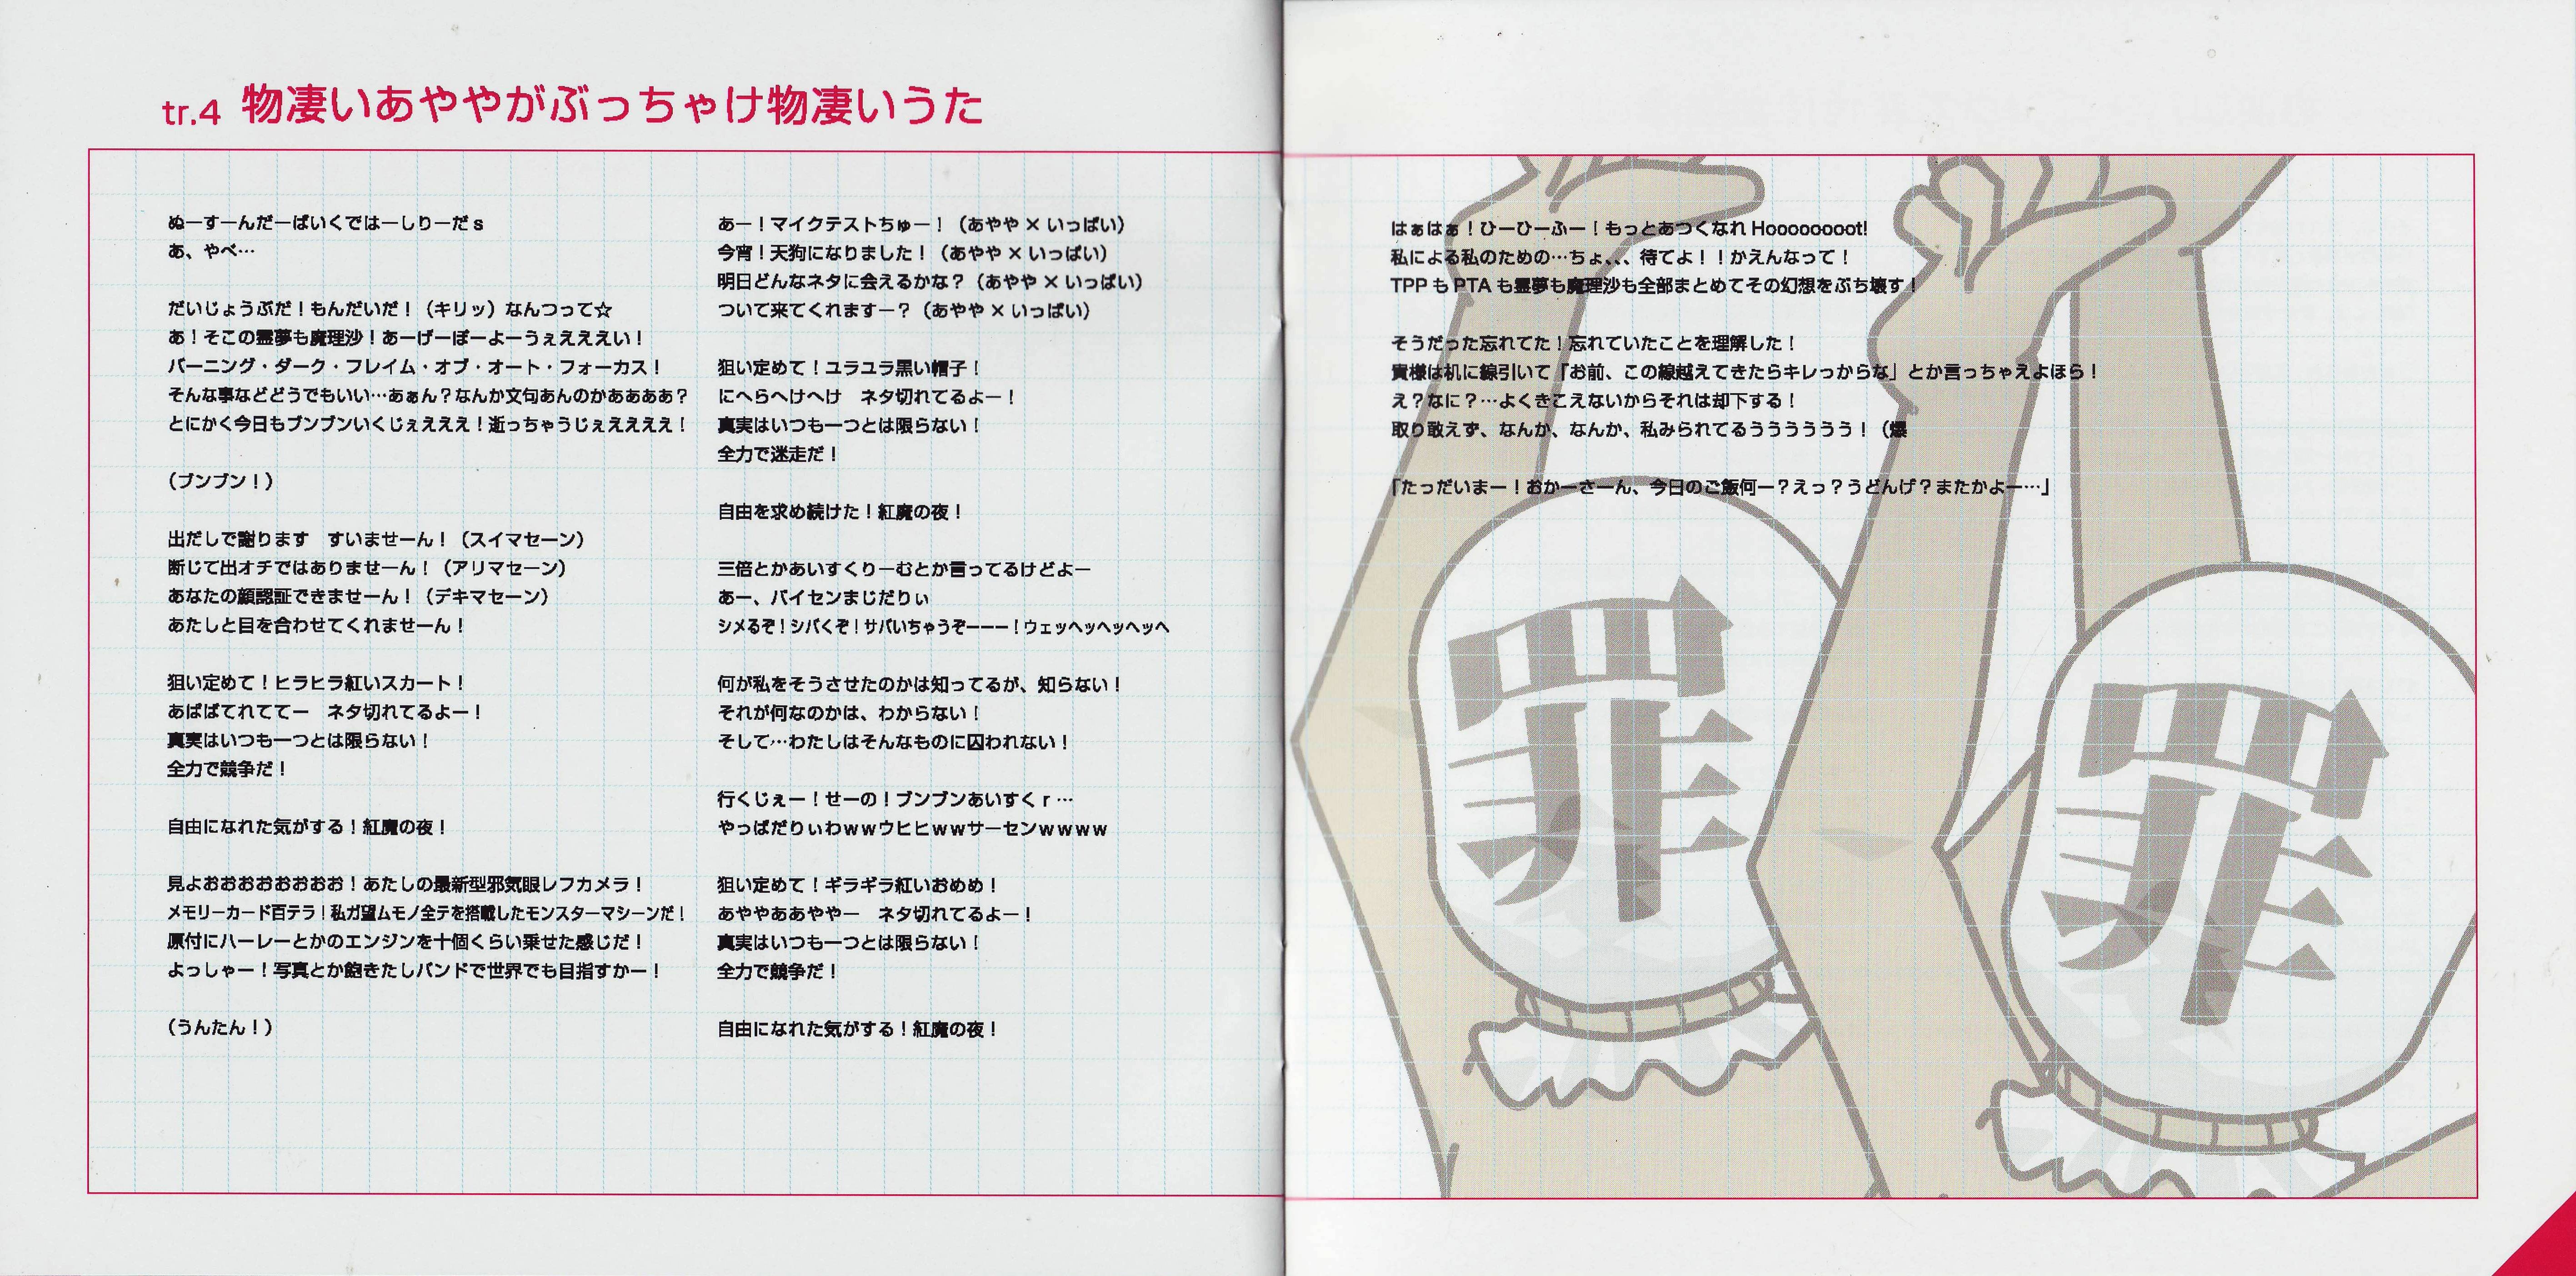 tr.4 物凄いあややがぶっちゃけ物凄いうた
ぬーすーんだーばいくではーしりーだs
あ、やべ…
だいじょうぶだ！もんだいだ！（キリッ）なんつって☆
あ！そこの霊夢も魔理沙！あーげーぽーよーうぇえええい！
バーニング・ダーク・フレイム・オブ・オート・フォーカス！
そんな事などどうでもいい…あぁん？なんか文句あんのかああああ？
とにかく今日もブンブンいくじぇえええ！逝っちゃうじぇええええ！
（ブンブン！）
出だしで謝ります　すいませーん！（スイマセーン）
断じて出オチではありませーん！（アリマセーン）
あなたの顔認証できませーん！（デキマセーン）
あたしと目を合わせてくれませーん！
狙い定めて！ヒラヒラ紅いスカート！
あばばてれててー　ネタ切れてるよー！
真実はいつも一つとは限らない！
全力で競争だ！
自由になれた気がする！紅魔の夜！
見よおおおおおおおお！あたしの最新型邪気眼レフカメラ！
メモリーカード百テラ！私ガ望ムモノ全テを搭載したモンスターマシーンだ！
原付にハーレーとかのエンジンを十個くらい乗せた感じだ！
よっしゃー！写真とか飽きたしバンドで世界でも目指すかー！
（うんたん！）
あー！マイクテストちゅー！（あやや×いっぱい）
今宵！天狗になりました！（あやや×いっぱい）
明日どんなネタに会えるかな？（あやや×いっぱい）
ついて来てくれますー？（あやや×いっぱい）
狙い定めて！ユラユラ黒い帽子！
にへらへけへけ　ネタ切れてるよー！
真実はいつも一つとは限らない！
全力で迷走だ！
自由を求め続けた！紅魔の夜！
三倍とかあいすくりーむとか言ってるけどよー
あー、パイセンまじだりぃ
シメるぞ！シバくぞ！サバいちゃうぞーーー！ウェッヘッヘッヘッヘ
何が私をそうさせたのかは知ってるが、知らない！
それが何なのかは、わからない！
そして…わたしはそんなものに囚われない！
行くじぇー！せーの！ブンブンあいすくr…
やっぱだりぃわwwウヒヒwwサーセンwwww
狙い定めて！ギラギラ紅いおめめ！
あややああややー　ネタ切れてるよー！
真実はいつも一つとは限らない！
全力で競争だ！
自由になれた気がする！紅魔の夜！
はぁはぁ！ひーひーふー！もっとあつくなれHoooooooot!
私による私のための…ちょ、、、待てよ！！かえんなって！
TPPもPTAも霊夢も魔理沙も全部まとめてその幻想をぶち壊す！
そうだった忘れてた！忘れていたことを理解した！
貴様は机に線引いて「お前、この線越えてきたらキレっからな」とか言っちゃえよほら！
え？なに？…よくきこえないからそれは却下する！
取り敢えず、なんか、なんか、私みられてるうううううう！（爆
「たっだいまー！おかーさーん、今日のご飯何ー？えっ？うどんげ？またかよー…」
罪
罪